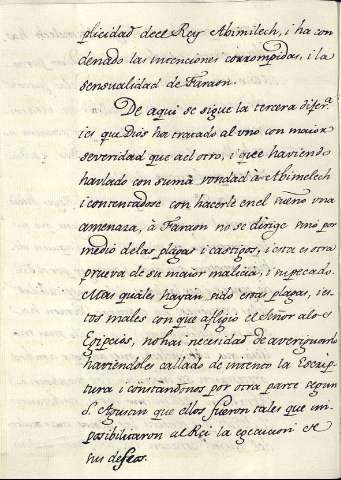 plicidad del Rey Abimilech, i ha con
denado las intenciones corrompidas, i la
sensualidad de Faraon.
De aqui se sigue la tercera difer.ª
i es que Dios ha tratado al vno con maior
severidad que a el otro, i que haviendo
havlado con suma vondad à Abimelech
i contentadose con hacerle en el sueño vna
amenaza, à Faraon no se dirige sinó por
medio de las plagas i castigos, i esta es otra
prueva de su maior malicia, i su pecado.
Mas quales hayan sido estas plagas, i es-
tos males con que afligio el Señor a los
Egipcios, no hai necesidad de averiguarlo
haviendoles callado de intento la Escrip-
tura i constandonos por otra parte segun
S. Agustin que ellos fueron tales que im-
posibilitaron al Rei la egecucion de
sus deseos.